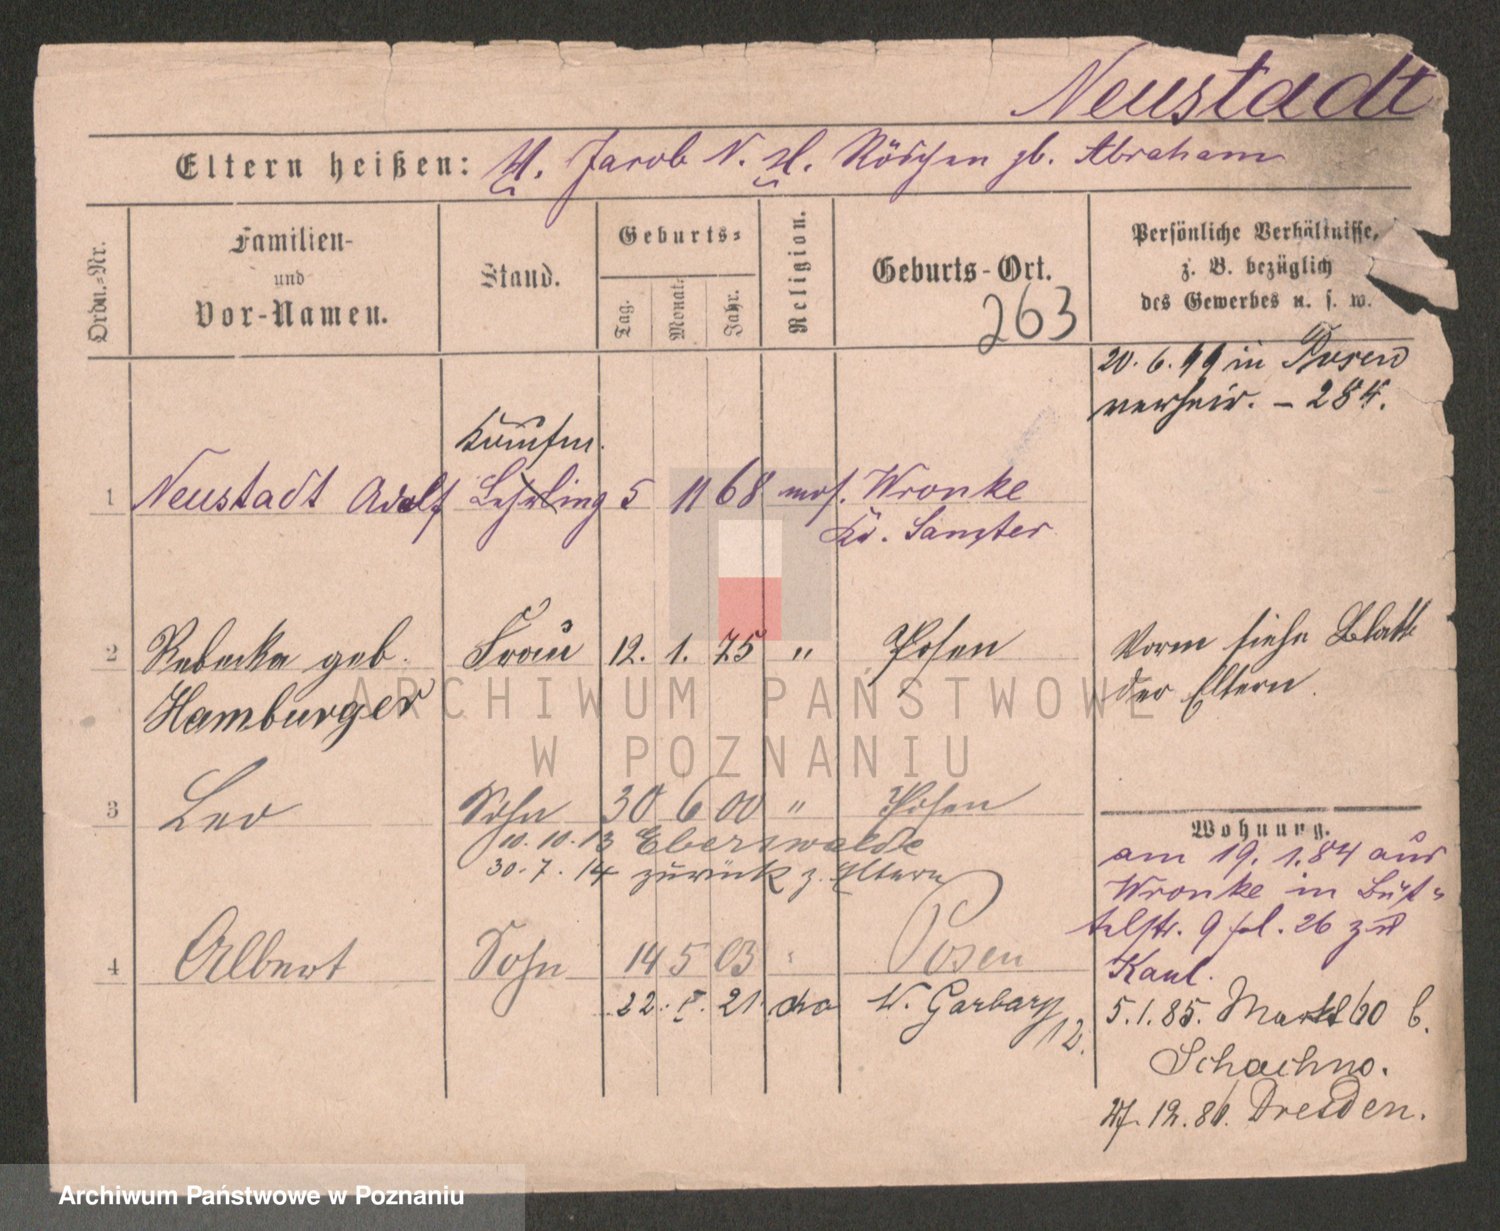 Neustadt
Eltern heißen: H. Jacob N. H. Röschen gb. Abraham
Ordn.-Nr.
Familien-
und
Vor-Namen.
Stand.
Geburts-
Tag.
Monat.
Jahr.
Religion.
Geburts-Ort.
263
Persönliche Verhältnisse,
z. B. bezüglich
des Gewerbes u. s. w.
20. 6. 99 in Posen
verheir. – 284.
Kaufm.
1 Neustadt Adolf Lehrling 5 11 68 mos. Wronke
Kr. Samter
2 Rebecka geb. Frau 12. 1. 75 " Posen
Hamburger
Vorm siehe Blatt
der Eltern.
3 Leo Sohn 30 6 00 " Posen
10. 10. 13 Eberswalde
30. 7. 14 zurück z. Eltern
4 Albert Sohn 14 5 03 " Posen
22. V. 21. W. Garbary
12.
Wohnung.
am 19. 1. 84 aus
Wronke in Büt-
telstr. 9 26 zu
Kaul.
5. 1. 85. Markt 60 b.
Schachno.
27. 12. 86. Dresden.
ARCHIWUM PAŃSTWOWE
W POZNANIU
Archiwum Państwowe w Poznaniu